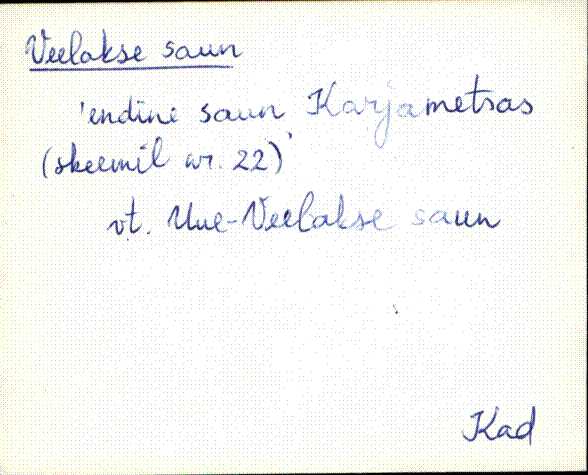 Veelakse saun
'endine saun Karjametsas
(skeemil nr. 22)'
vt. Uue-Veelakse saun
Kad